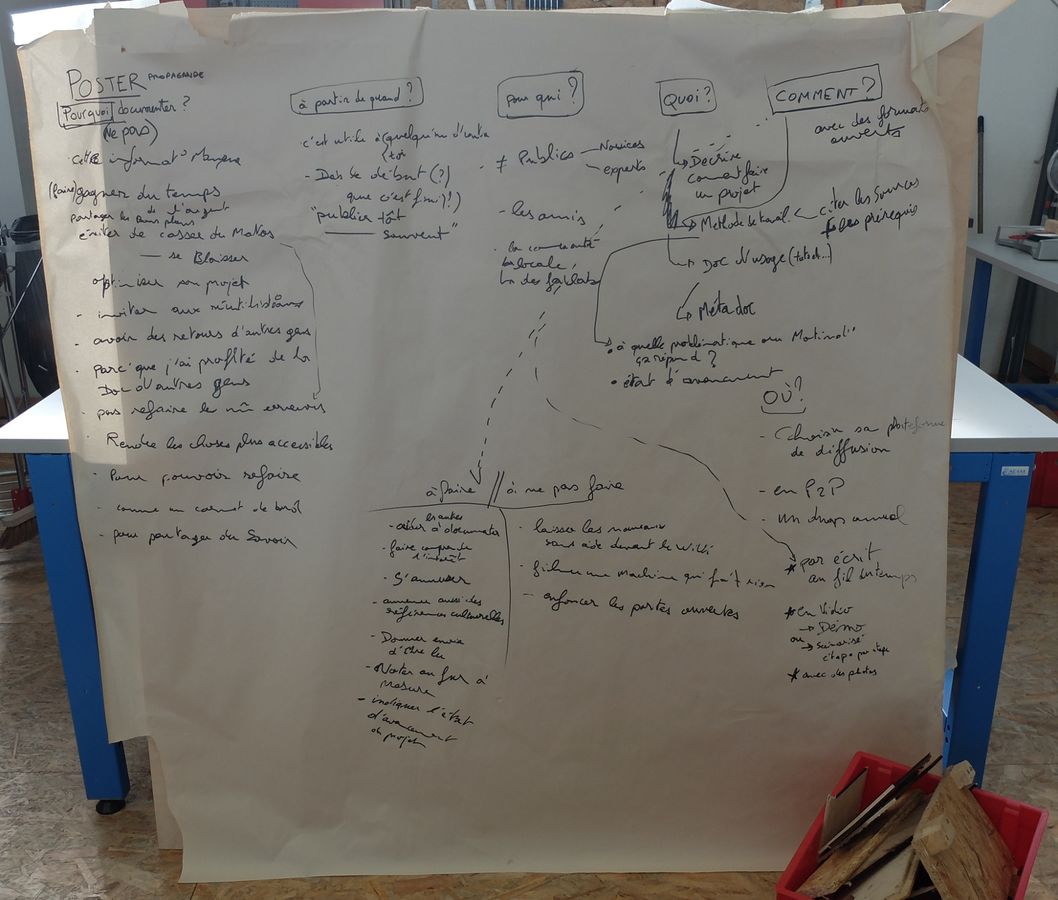 POSTER PROPAGANDE
Pourquoi documenter ?
(Ne pas)
(faire) gagner du temps
de l'argent
partager les bons plans
éviter de casser du Matos
— se Blesser
optimiser son projet
- inviter aux réutilisations
- avoir des retours d'autres gens
- parc'que j'ai profité de la
Doc d'autres gens
- pas refaire les mm erreurs
- Rendre les choses plus accessibles
- Pour pouvoir refaire
- comme un carnet de bord
- pour partager du Savoir
à partir de quand ?
c'est utile à quelqu'un d'autre
toi
- Dès le début (?)
que c'est fini (!)
"publier tôt
—— souvent"
pour qui ?
≠ Publics
Novices
experts
- les amis
- la communauté
locale,
des fablabs
QUOI ?
Décrire
comment faire
un projet
Méthode de travail
citer les Sources
prérequis
Doc d'usage (tuto...)
Méta doc
• à quelle problématique ou Motivat°
ça répond ?
• état d'avancement
COMMENT ?
avec des formats
ouverts
OÙ ?
- Choisir sa plateforme
de diffusion
- en P2P
- un drop annuel
* par écrit
au fil du temps
* en Vidéo
→ Démo
ou → Scénarisé
étape par étape
* avec des photos
à faire // à ne pas faire
les autres
- aider à documenter
- faire comprendre
l'intérêt
- S'amuser
- amener aussi des
références culturelles
- Donner envie
d'être lu
- Noter au fur à
mesure
- indiquer l'état
d'avancement
du projet
- laisser les nouveaux
sans aide devant le Wiki
- filmer une machine qui fait rien
- enfoncer les portes ouvertes